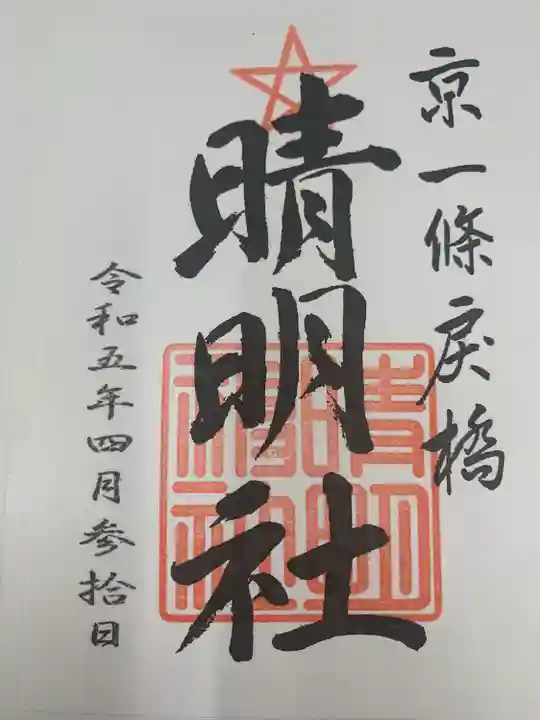 京一條戻橋
晴明社
晴明神社
令和五年四月参拾日